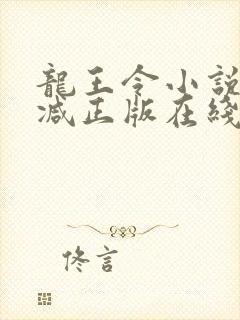 龍王令小說
减正版在綫
佟言